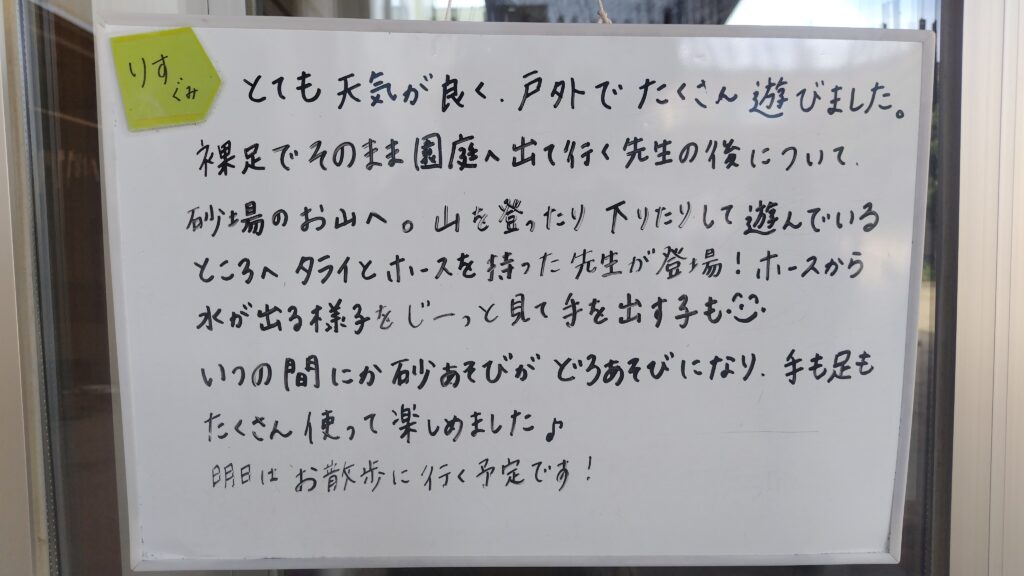 りす
ぐみ
とても 天気が良く、戸外で たくさん 遊びました。
裸足でそのまま園庭へ出て行く先生の後について、
砂場のお山へ。山を登ったり 下りたりして遊んでいる
ところへ タライとホースを持った先生が登場！ホースから
水が出る様子をじーっと見て手を出す子も
いつの間にか砂あそびが どろあそびになり、手も足も
たくさん使って楽しめました♪
明日は お散歩に行く予定です！